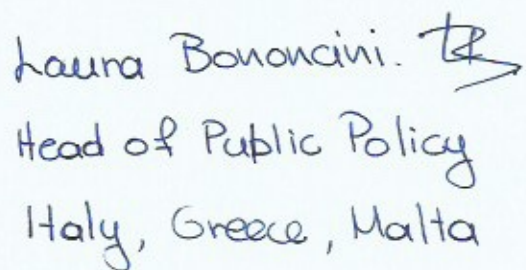 Laura Bononcini.
Head of Public Policy
Italy, Greece, Malta